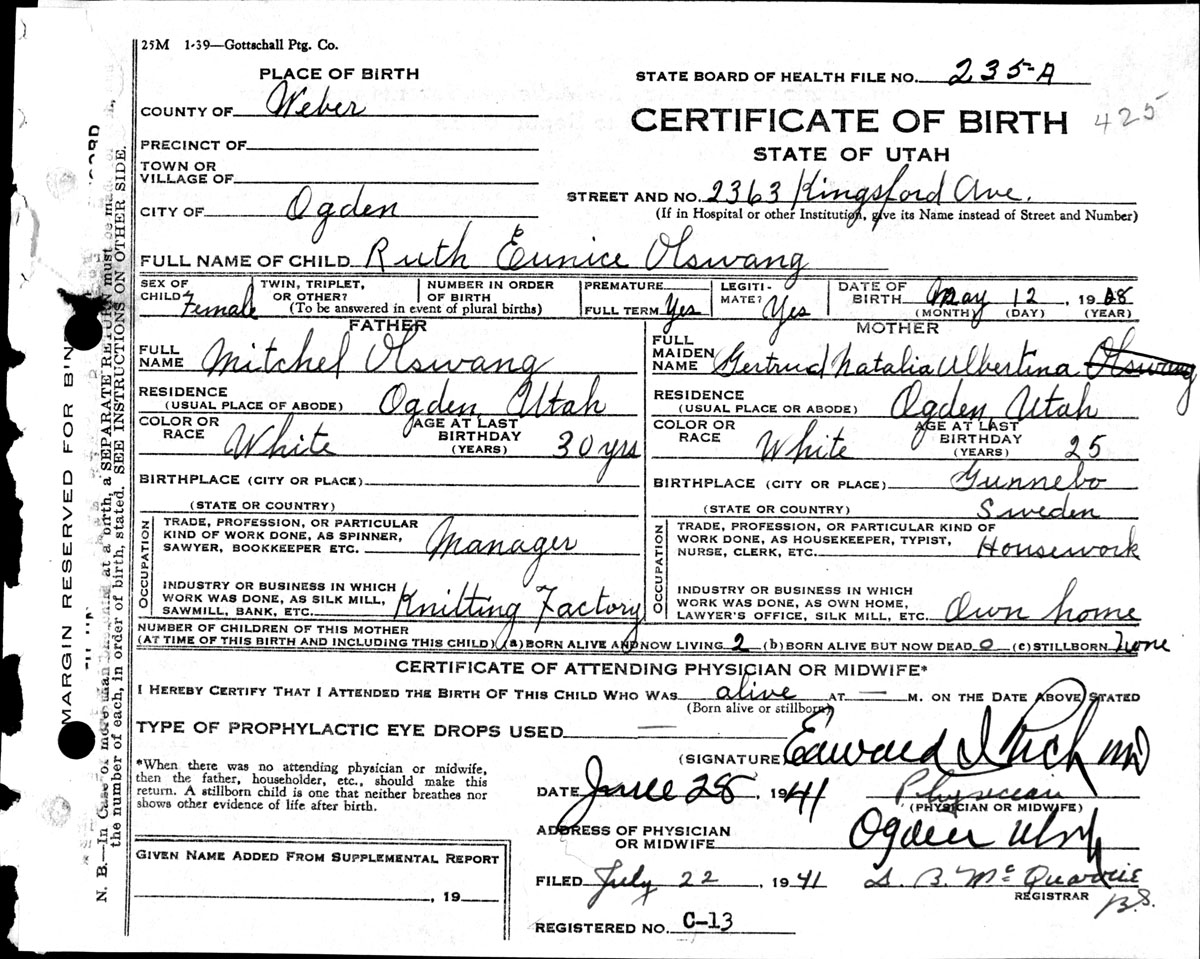 25M 1-39—Gottschall Ptg. Co.
PLACE OF BIRTH
COUNTY OF Weber
PRECINCT OF
TOWN OR
VILLAGE OF
CITY OF Ogden
STATE BOARD OF HEALTH FILE NO. 235-A
CERTIFICATE OF BIRTH 425
STATE OF UTAH
STREET AND NO. 2363 Kingsford Ave.
(If in Hospital or other Institution, give its Name instead of Street and Number)
FULL NAME OF CHILD Ruth Eunice Olswang
SEX OF
CHILD Female
TWIN, TRIPLET,
OR OTHER?
NUMBER IN ORDER
OF BIRTH
(To be answered in event of plural births)
PREMATURE
FULL TERM Yes
LEGITI-
MATE? Yes
DATE OF
BIRTH May 12, 19
(MONTH) (DAY) (YEAR)
FATHER
FULL
NAME Mitchel Olswang
RESIDENCE
(USUAL PLACE OF ABODE) Ogden, Utah
COLOR OR
RACE White
AGE AT LAST
BIRTHDAY
(YEARS) 30 yrs
BIRTHPLACE (CITY OR PLACE)
(STATE OR COUNTRY)
OCCUPATION
TRADE, PROFESSION, OR PARTICULAR
KIND OF WORK DONE, AS SPINNER,
SAWYER, BOOKKEEPER ETC. Manager
INDUSTRY OR BUSINESS IN WHICH
WORK WAS DONE, AS SILK MILL,
SAWMILL, BANK, ETC. Knitting Factory
MOTHER
FULL
MAIDEN
NAME Gertrud Natalia Albertina Olswang
RESIDENCE
(USUAL PLACE OR ABODE) Ogden, Utah
COLOR OR
RACE White
AGE AT LAST
BIRTHDAY
(YEARS) 25
BIRTHPLACE (CITY OR PLACE) Gunnebo
(STATE OR COUNTRY) Sweden
OCCUPATION
TRADE, PROFESSION, OR PARTICULAR KIND OF
WORK DONE, AS HOUSEKEEPER, TYPIST,
NURSE, CLERK, ETC. Housework
INDUSTRY OR BUSINESS IN WHICH
WORK WAS DONE, AS OWN HOME,
LAWYER'S OFFICE, SILK MILL, ETC. Own home
NUMBER OF CHILDREN OF THIS MOTHER
(AT TIME OF THIS BIRTH AND INCLUDING THIS CHILD) (a) BORN ALIVE AND NOW LIVING 2 (b) BORN ALIVE BUT NOW DEAD 0 (c) STILLBORN none
CERTIFICATE OF ATTENDING PHYSICIAN OR MIDWIFE*
I HEREBY CERTIFY THAT I ATTENDED THE BIRTH OF THIS CHILD WHO WAS alive AT — M. ON THE DATE ABOVE STATED
(Born alive or stillborn)
TYPE OF PROPHYLACTIC EYE DROPS USED —
*When there was no attending physician or midwife,
then the father, householder, etc., should make this
return. A stillborn child is one that neither breathes nor
shows other evidence of life after birth.
(SIGNATURE Edward I Rich MD
DATE June 28, 1941 Physician
(PHYSICIAN OR MIDWIFE)
ADDRESS OF PHYSICIAN
OR MIDWIFE Ogden Utah
GIVEN NAME ADDED FROM SUPPLEMENTAL REPORT
, 19
FILED July 22, 1941 D. B. McQuarrie
REGISTRAR
B.S.
REGISTERED NO. C-13
MARGIN RESERVED FOR
N. B.—In Case of more than at a birth, a SEPARATE RETURN must be
the number of each, in order of birth, stated. SEE INSTRUCTIONS ON OTHER SIDE.